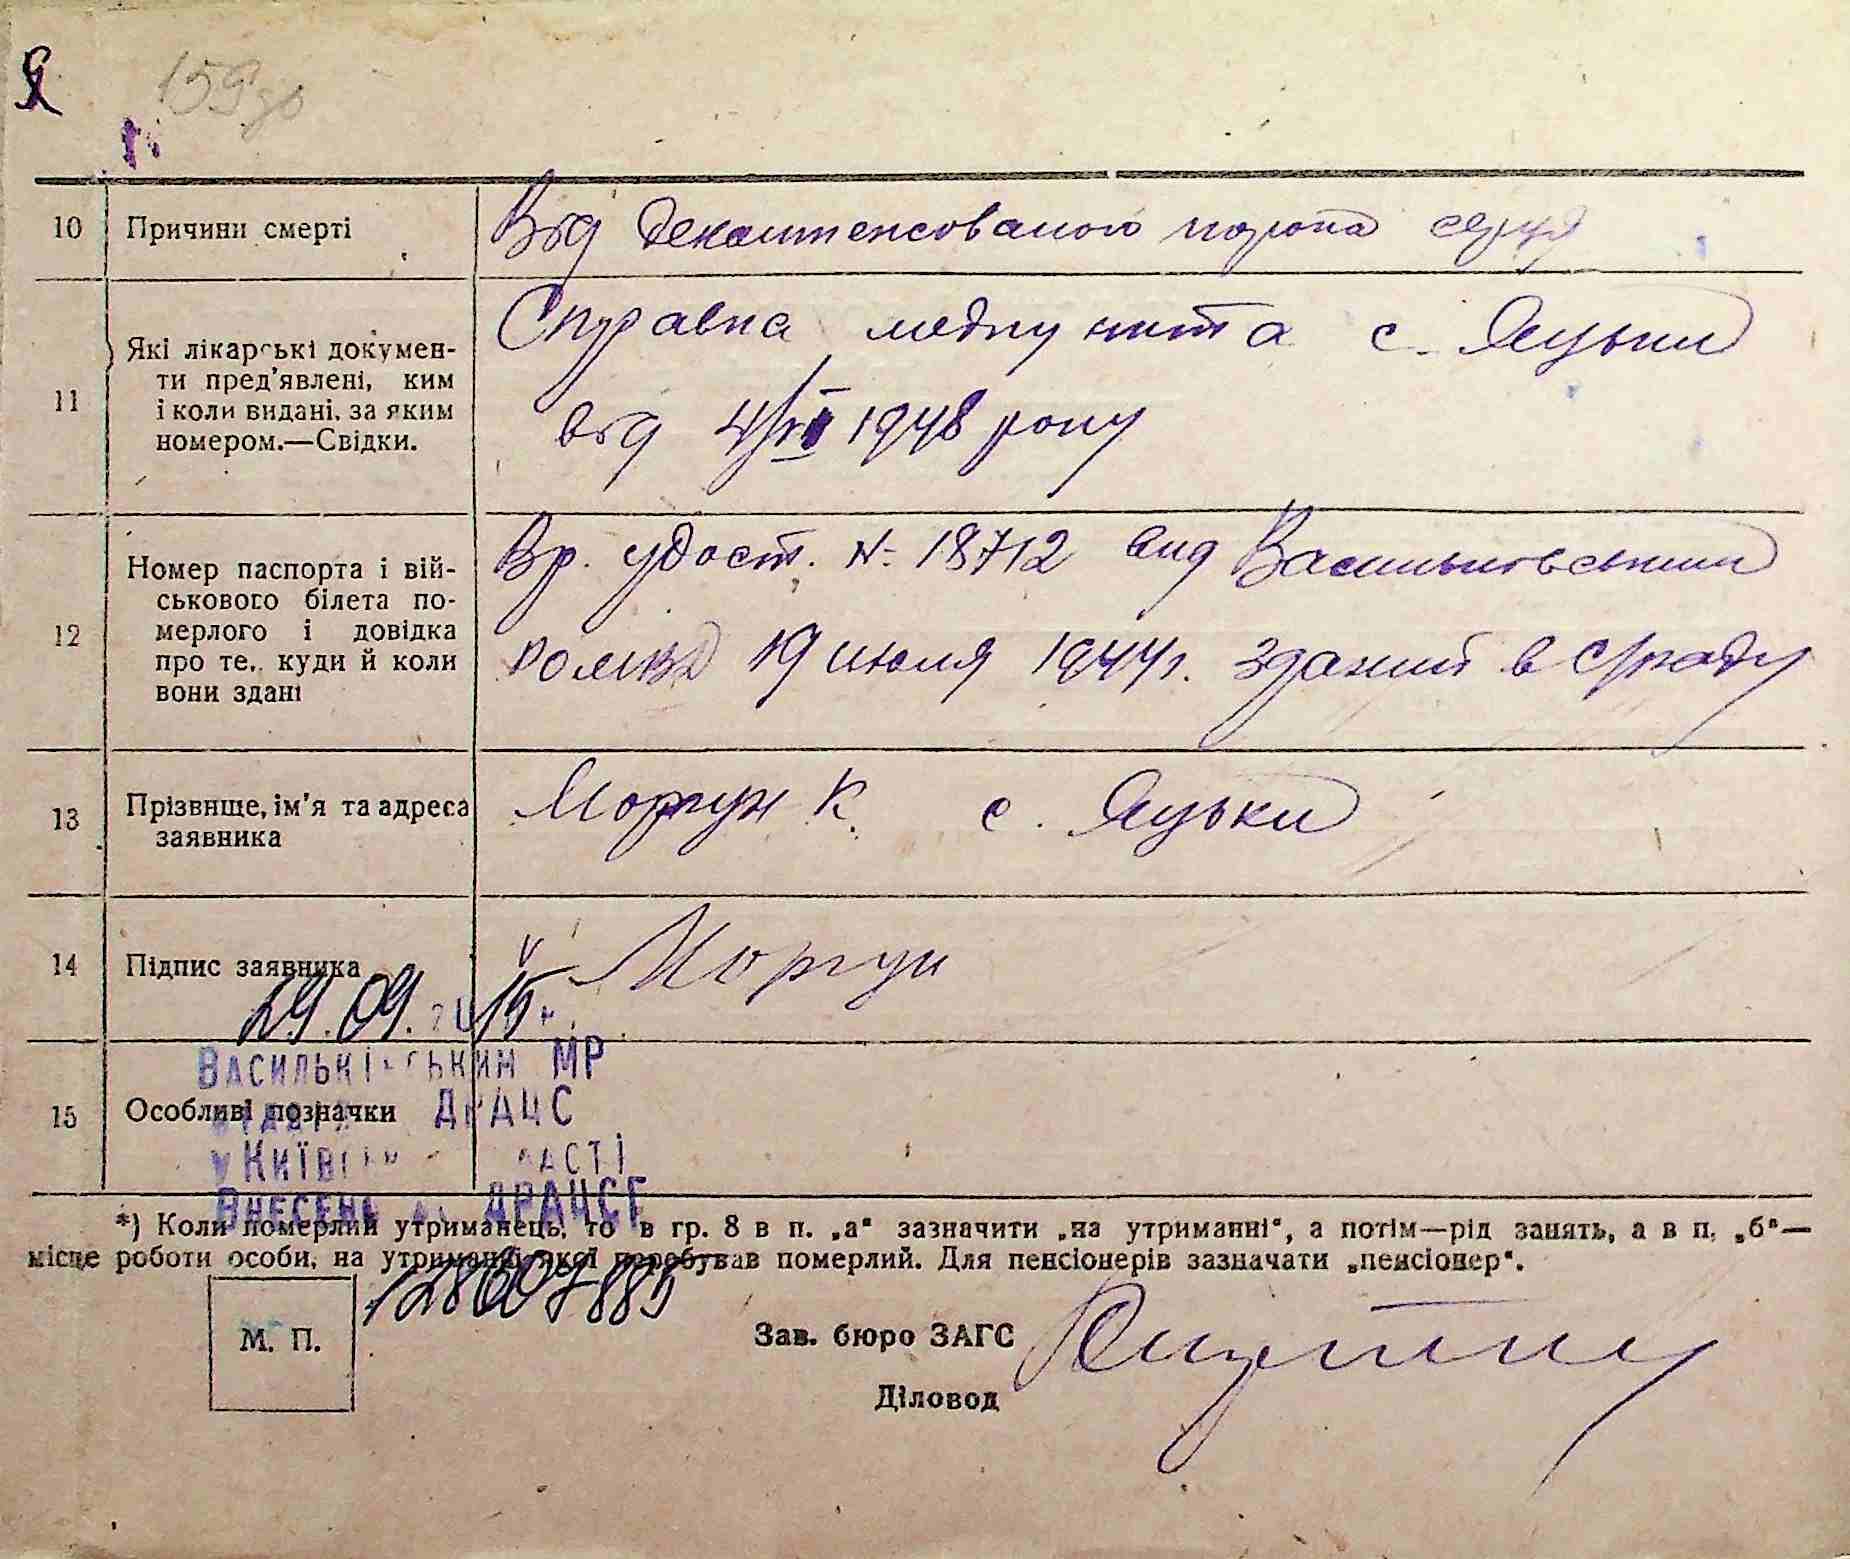 159 зв
10 Причини смерті
Від декомпенсованого порока серця
11 Які лікарські докумен-
ти пред'явлені, ким
і коли видані, за яким
номером.—Свідки.
Справка медпункта с. Яцьки
від 4/ 1948 року
12 Номер паспорта і вій-
ськового білета по-
мерлого і довідка
про те, куди й коли
вони здані
Вр. удост. № 18712 вид Васильковським
19 июля 1944 г. зданий в с/раду
13 Прізвище, ім'я та адреса
заявника
Моргун К. с. Яцьки
14 Підпис заявника
Моргун
29.09. 2015 р.
Васильківським МР
15 Особливі позначки
ДРАЦС
у Київській області
Внесено до ДРАЦСГ
*) Коли померлий утриманець, то в гр. 8 в п. „а“ зазначити „на утриманні“, а потім—рід занять, а в п. „б“—
місце роботи особи, на утриманні якої перебував померлий. Для пенсіонерів зазначати „пенсіонер“.
М. П.
Зав. бюро ЗАГС
Діловод